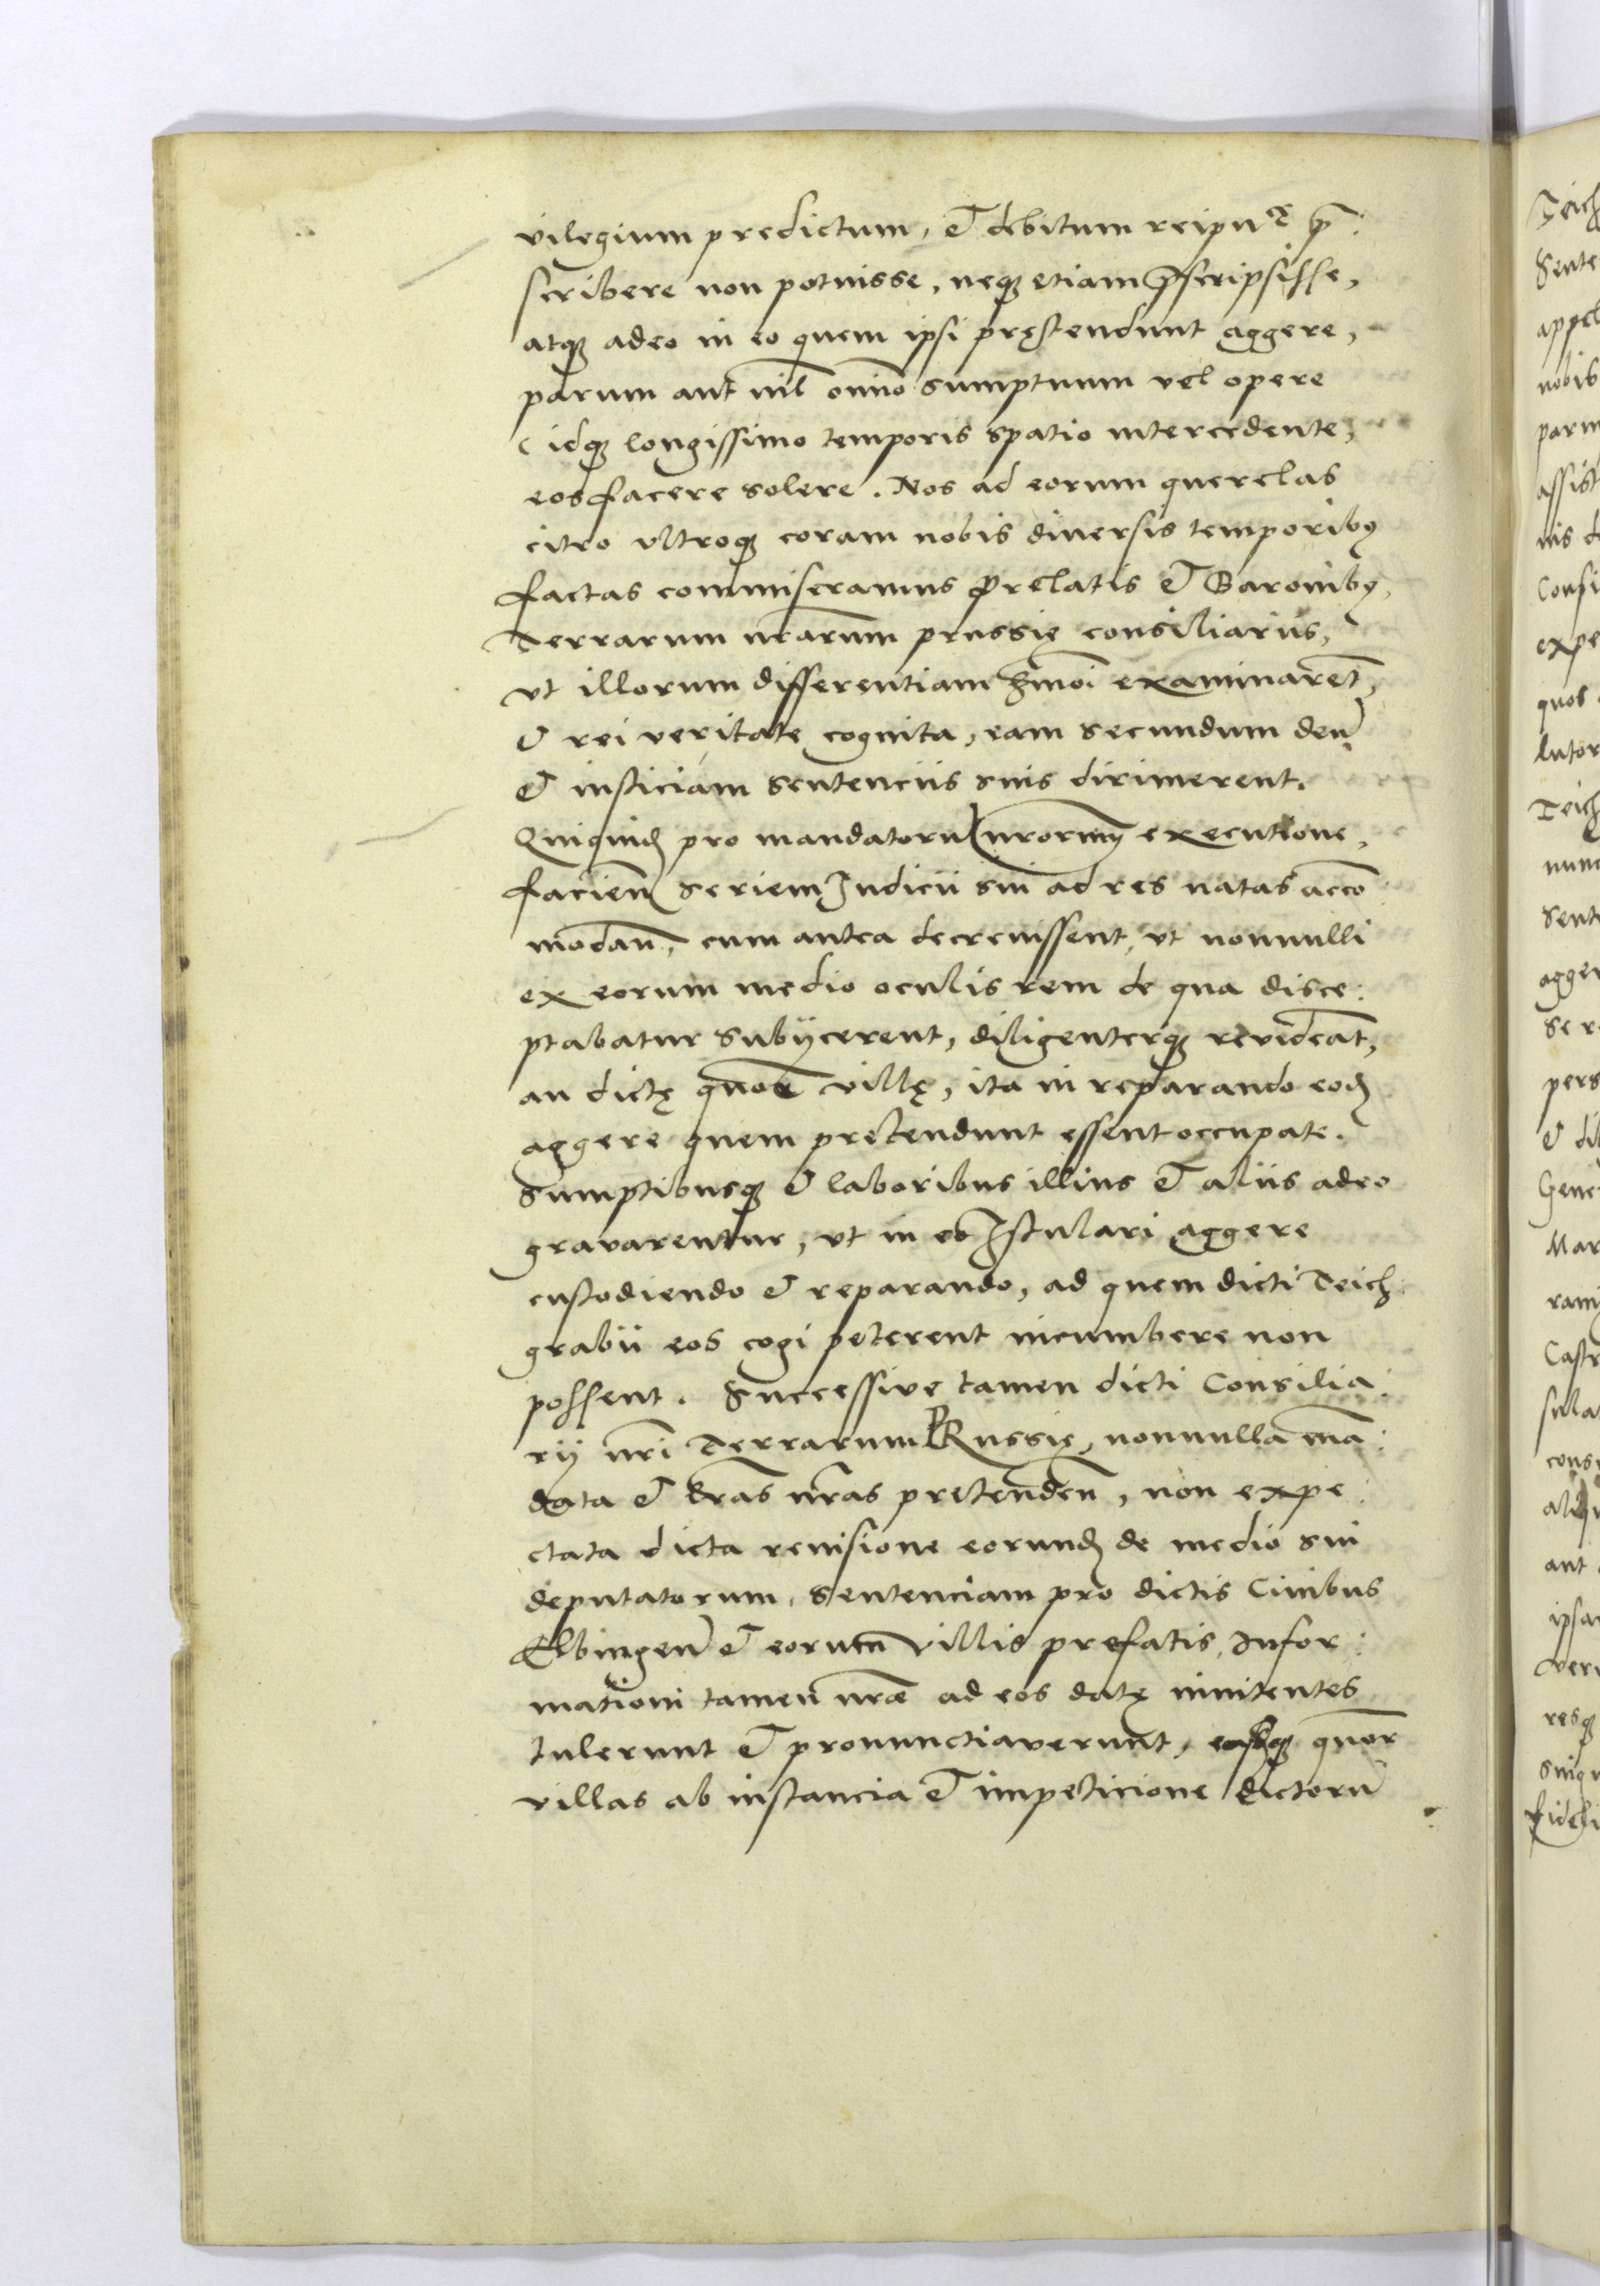 vilegium predictum, et debitum reipu^ce prę:
scribere non potuisse, neq; etiam p̄scripsisse,
atq; adeo in eo quem ipsi pręstendunt aggere,
parum aut nil̄ omīo sumptuum vel opere
idq; longissimo temporis spatio intercedente,
eos facere solere. Nos ad eorum querelas
citro vltroq; coram nobis diuersis temporibꝫ
factas commiseramus prelatis et Baronibꝫ,
Terrarum nrārum prussię consiliariis,
vt illorum differentiam hmōi examinarent̄,
et rei veritate cognita, eam secundum deū
et iusticiam sentenciis suis dirimerent.
Quiquid̄ pro mandatorū nrorum executione,
facien̄ seriem Iudicii sui ad res natas acco:
modan̄, cum antea decreuissent, vt nonnulli
ex eorum medio oculis rem de qua disce:
ptabatur subijcerent, diligenterq; revideāt,
an dictę quōr villę, ita in reparando eod̄
aggere quem pretendunt essent occupate.
Sumptibusq; et laboribus illius et aliis adeo
gravarentur, vt in eo Istulari aggere
custodiendo et reparando, ad quem dicti Teich:
grabii eos cogi peterent incumbere non
possent. Successive tamen dicti Consilia:
rij nrī Terrarum Prussię, nonnulla mā:
data et lrās nrās pretenden̄, non expe:
ctata dicta reuisione eorund̄ de medio sui
deputatorum, sentenciam pro dictis Ciuibus
Elbingen̄ et eorum villis prefatis, Infor:
mationi tamen nrāe ad eos datę innitentes
tulerunt et pronunctiaverunt, easq; quōr
villas ab instancia et impeticione dictorū